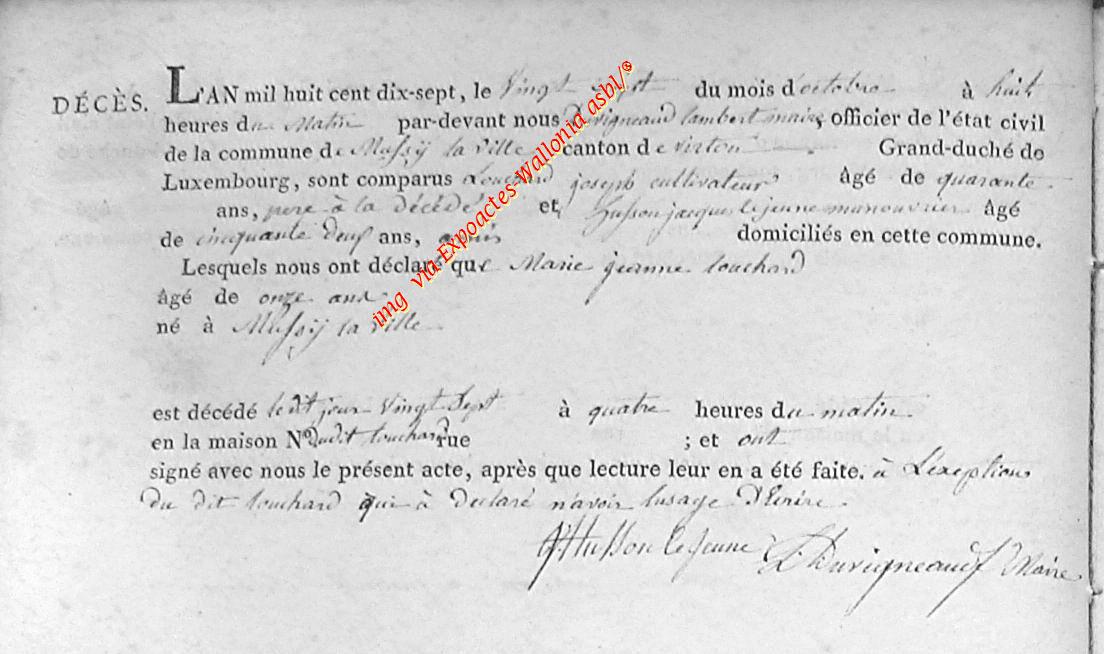 DÉCÈS. L'AN mil huit cent dix-sept, le Vingt Sept du mois d'octobre à huit
heures du Matin par-devant nous duvigneaud lambert maire, officier de l'état civil
de la commune de Mussÿ la ville canton de virton Grand-duché de
Luxembourg, sont comparus touchard joseph cultivateur âgé de quarante
ans, pere à la décédé et husson jacques lejeune manouvrier âgé
de cinquante deux ans, domiciliés en cette commune.
Lesquels nous ont déclaré que Marie jeanne touchard
âgé de onze ans
né à Mussÿ la ville
est décédé ledit jour Vingt Sept à quatre heures du matin
en la maison No dudit touchard rue ; et ont
signé avec nous le présent acte, après que lecture leur en a été faite. à L'exeption
du dit touchard qui à declaré n'avoir lusage d'Ecrire.
J Husson le Jeune L. Duvigneaud Maire
img via Expoactes-Wallonia asbl/®